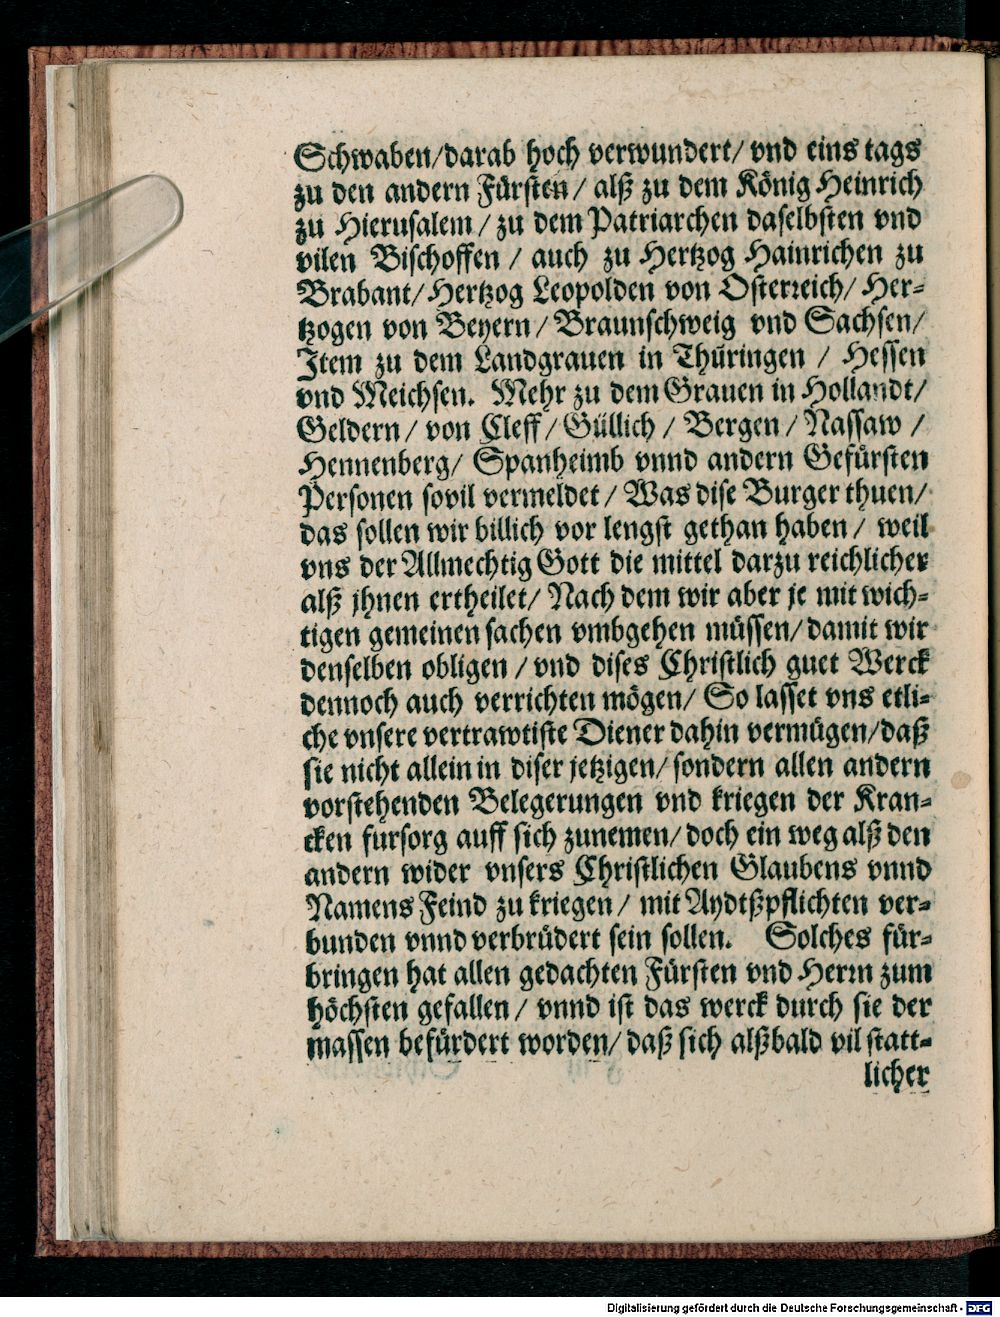 Schwaben/darab hoch verwundert/ vnd eins tags
zu den andern Fürsten/ alß zu dem König Heinrich
zu Hierusalem/ zu dem Patriarchen daselbsten vnd
vilen Bischoffen / auch zu Hertzog Hainrichen zu
Brabant/ Hertzog Leopolden von Osterreich/ Her-
tzogen von Beyern/ Braunschweig vnd Sachsen/
Item zu dem Landgrauen in Thüringen / Hessen
vnd Meichsen. Mehr zu dem Grauen in Hollandt/
Geldern/ von Cleff/ Güllich / Bergen / Nassaw /
Hennenberg/ Spanheimb vnnd andern Gefürsten
Personen souil vermeldet / Was dise Burger thuen/
das sollen wir billich vor lengst gethan haben / weil
vns der Allmechtig Gott die mittel darzu reichlicher
alß jhnen ertheilet/ Nach dem wir aber je mit wich-
tigen gemeinen sachen vmbgehen müssen/ damit wir
denselben obligen / vnd dises Christlich guet Werck
dennoch auch verrichten mögen/ So lasset vns etli-
che vnsere vertrawtiste Diener dahin vermügen/daß
sie nicht allein in diser jetzigen/ sondern allen andern
vorstehenden Belegerungen vnd kriegen der Kran-
cken fursorg auff sich zunemen/ doch ein weg alß den
andern wider vnsers Christlichen Glaubens vnnd
Namens Feind zu kriegen / mit Aydtßpflichten ver-
bunden vnnd verbrüdert sein sollen. Solches für-
bringen hat allen gedachten Fürsten vnd Herrn zum
höchsten gefallen / vnnd ist das werck durch sie der
massen befürdert worden/ daß sich alßbald vil statt-
licher
Digitalisierung gefördert durch die Deutsche Forschungsgemeinschaft - DFG